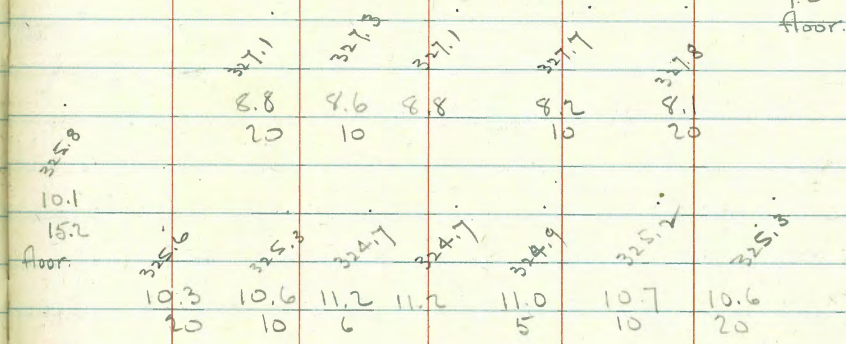 floor.
327.1 327.3 327.1 327.7 327.8
8.8 8.6 8.8 8.2 8.1
20 10 10 20
325.8
10.1
15.2
floor.
325.6 325.3 324.7 324.7 324.9 325.2 325.3
10.3 10.6 11.2 11.2 11.0 10.7 10.6
20 10 6 5 10 20